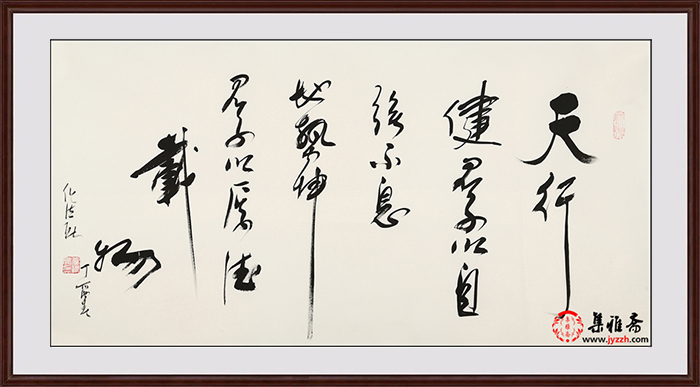 天行
健君子以自
强不息
地勢坤
君子以厚德
載物
集雅斋
www.jyzzh.com